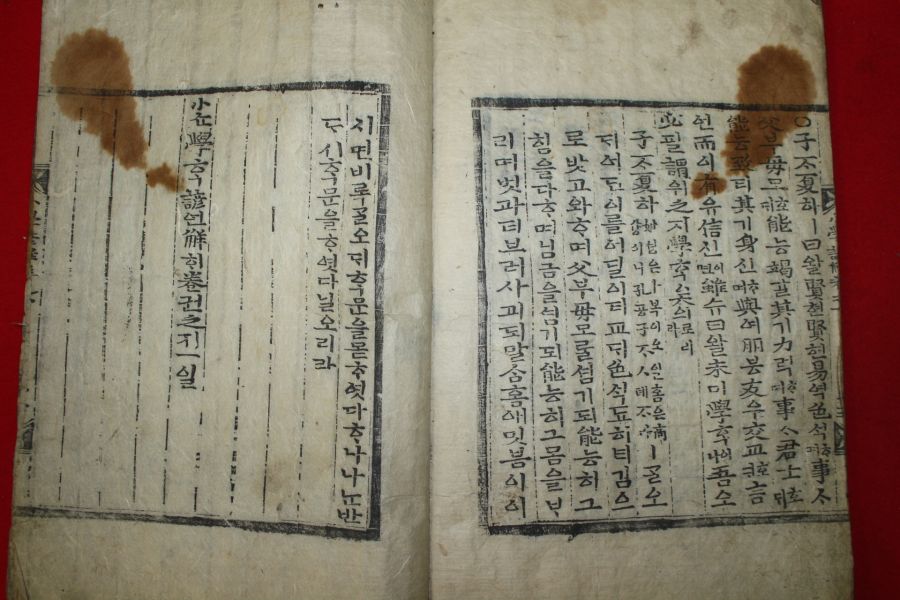 ○子ᄌᆞ夏하ㅣ曰왈賢현賢현易역色ᄉᆡᆨᄒᆞ며事ᄉᆞ
父부母모호ᄃᆡ能능竭갈其기力력ᄒᆞ며事ᄉᆞ君군호ᄃᆡ
能능致티其기身신ᄒᆞ며與여朋붕友우交교호ᄃᆡ言
언而이有유信신이면雖슈曰왈未미學ᄒᆞᆨ이나吾오
必필謂위之지學ᄒᆞᆨ矣의라호리라
子ᄌᆞ夏하ㅣᄀᆞᆯ오
ᄃᆡ어딘이를어딜이너교ᄃᆡ色ᄉᆡᆨ됴히너김으
로밧고와ᄒᆞ며父부母모ᄅᆞᆯ셤기되能능히그
힘을다ᄒᆞ며님금을셤기되能능히그몸을ᄇᆞ
리며벗과더브러사괴되말ᄉᆞᆷ홈애밋븜이이
시면비록ᄀᆞᆯ오ᄃᆡᄒᆞᆨ문을몯ᄒᆞ엿다ᄒᆞ나나ᄂᆞᆫ반
ᄃᆞ시ᄒᆞᆨ문을ᄒᆞ엿다닐오리라
小쇼學ᄒᆞᆨ諺언解ᄒᆡ卷권之지一일